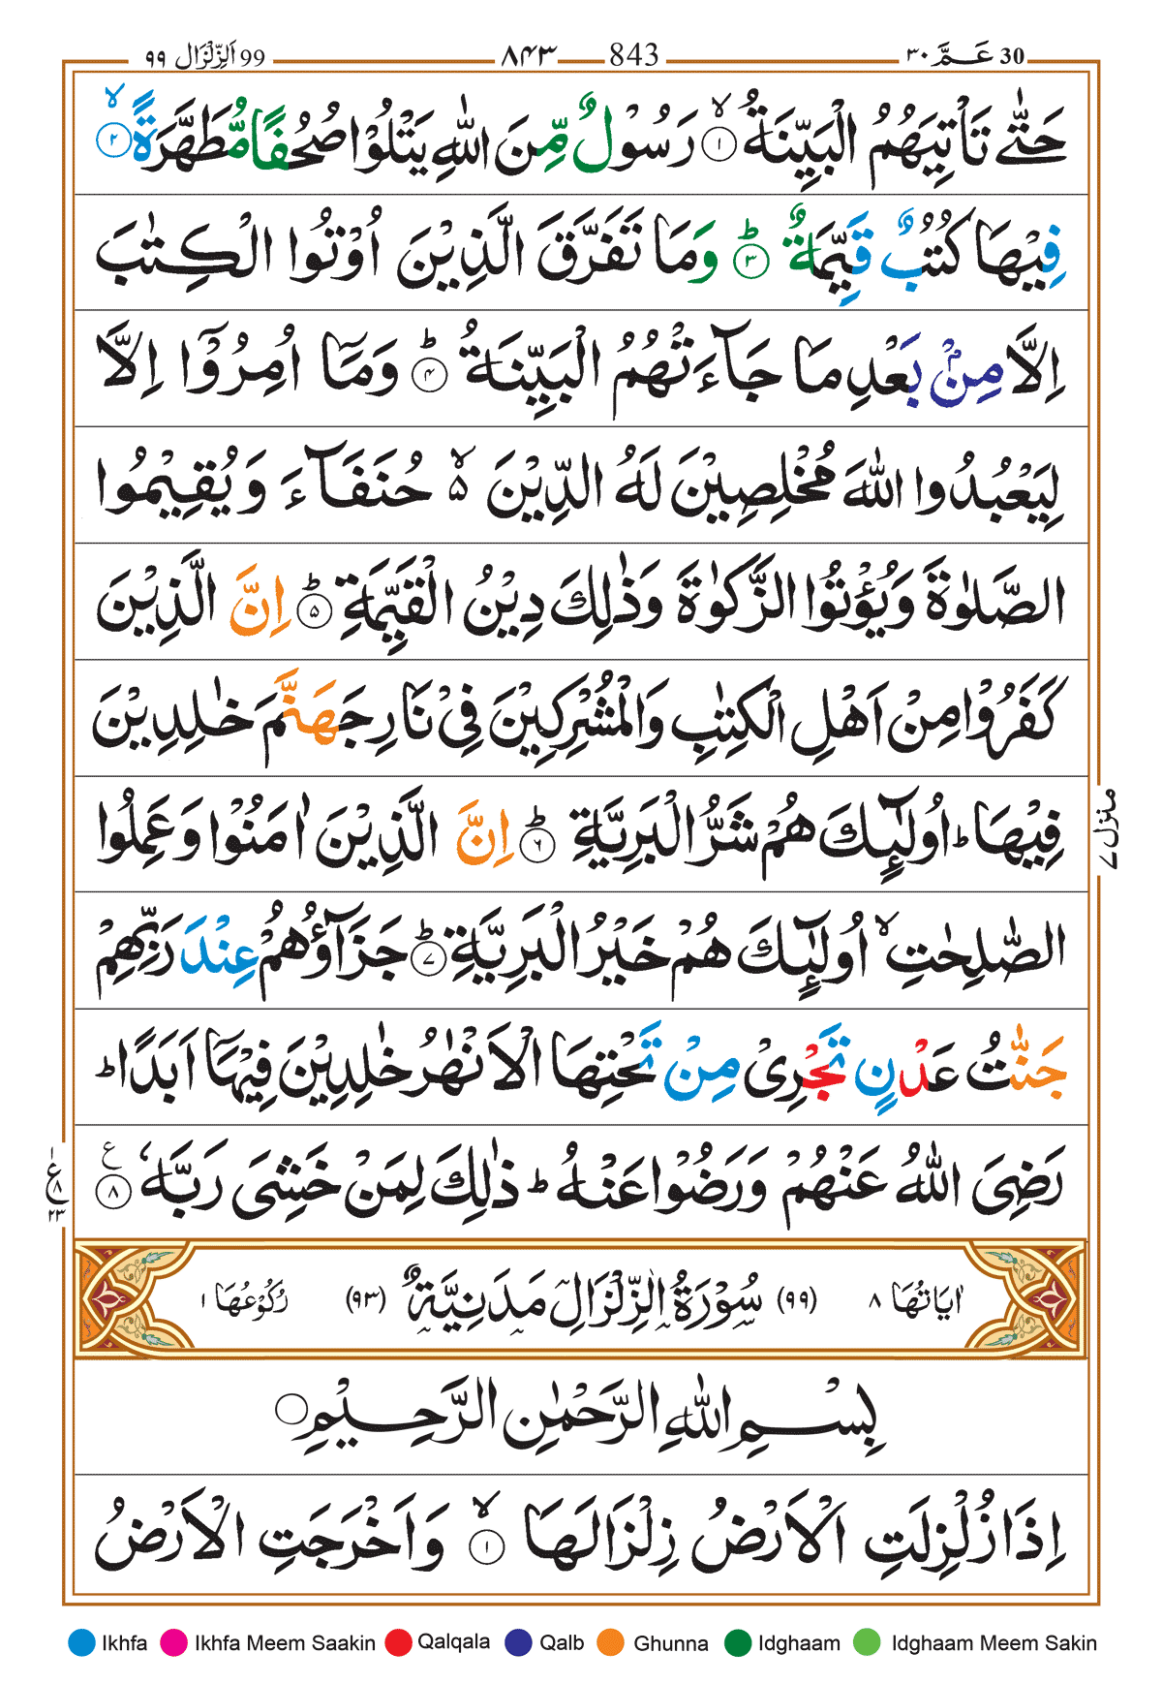 99 اَلزِّلْزَال ٩٩ ٨٤٣ 843 30 عَـمَّ ٣٠
حَتّٰى تَاْتِيَهُمُ الْبَيِّنَةُ ۙ﴿١﴾ رَسُوْلٌ مِّنَ اللّٰهِ يَتْلُوْا صُحُفًا مُّطَهَّرَةً ۙ﴿٢﴾
فِيْهَا كُتُبٌ قَيِّمَةٌ ؕ﴿٣﴾ وَمَا تَفَرَّقَ الَّذِيْنَ اُوْتُوا الْكِتٰبَ
اِلَّا مِنْۢ بَعْدِ مَا جَآءَتْهُمُ الْبَيِّنَةُ ؕ﴿٤﴾ وَمَاۤ اُمِرُوْۤا اِلَّا
لِيَعْبُدُوا اللّٰهَ مُخْلِصِيْنَ لَهُ الدِّيْنَ ۙ۵ حُنَفَآءَ وَيُقِيْمُوا
الصَّلٰوةَ وَيُؤْتُوا الزَّكٰوةَ وَذٰلِكَ دِيْنُ الْقَيِّمَةِ ؕ﴿۵﴾ اِنَّ الَّذِيْنَ
كَفَرُوْا مِنْ اَهْلِ الْكِتٰبِ وَالْمُشْرِكِيْنَ فِيْ نَارِ جَهَنَّمَ خٰلِدِيْنَ
فِيْهَا ؕ اُولٰٓئِكَ هُمْ شَرُّ الْبَرِيَّةِ ؕ﴿٦﴾ اِنَّ الَّذِيْنَ اٰمَنُوْا وَعَمِلُوا
الصّٰلِحٰتِ ۙ اُولٰٓئِكَ هُمْ خَيْرُ الْبَرِيَّةِ ؕ﴿٧﴾ جَزَآؤُهُمْ عِنْدَ رَبِّهِمْ
جَنّٰتُ عَدْنٍ تَجْرِيْ مِنْ تَحْتِهَا الْاَنْهٰرُ خٰلِدِيْنَ فِيْهَاۤ اَبَدًا ؕ
رَضِيَ اللّٰهُ عَنْهُمْ وَرَضُوْا عَنْهُ ؕ ذٰلِكَ لِمَنْ خَشِيَ رَبَّهٗ ﴿٨﴾ ع
ع ٨ ٢٣
منزل ٧
اٰيَاتُهَا ٨ (٩٩) سُوْرَةُ الزِّلْزَالِ مَدَنِيَّةٌ (٩٣) رُكُوْعُهَا ١
بِسْمِ اللّٰهِ الرَّحْمٰنِ الرَّحِيْمِ
اِذَا زُلْزِلَتِ الْاَرْضُ زِلْزَالَهَا ۙ﴿١﴾ وَاَخْرَجَتِ الْاَرْضُ
Ikhfa Ikhfa Meem Saakin Qalqala Qalb Ghunna Idghaam Idghaam Meem Sakin